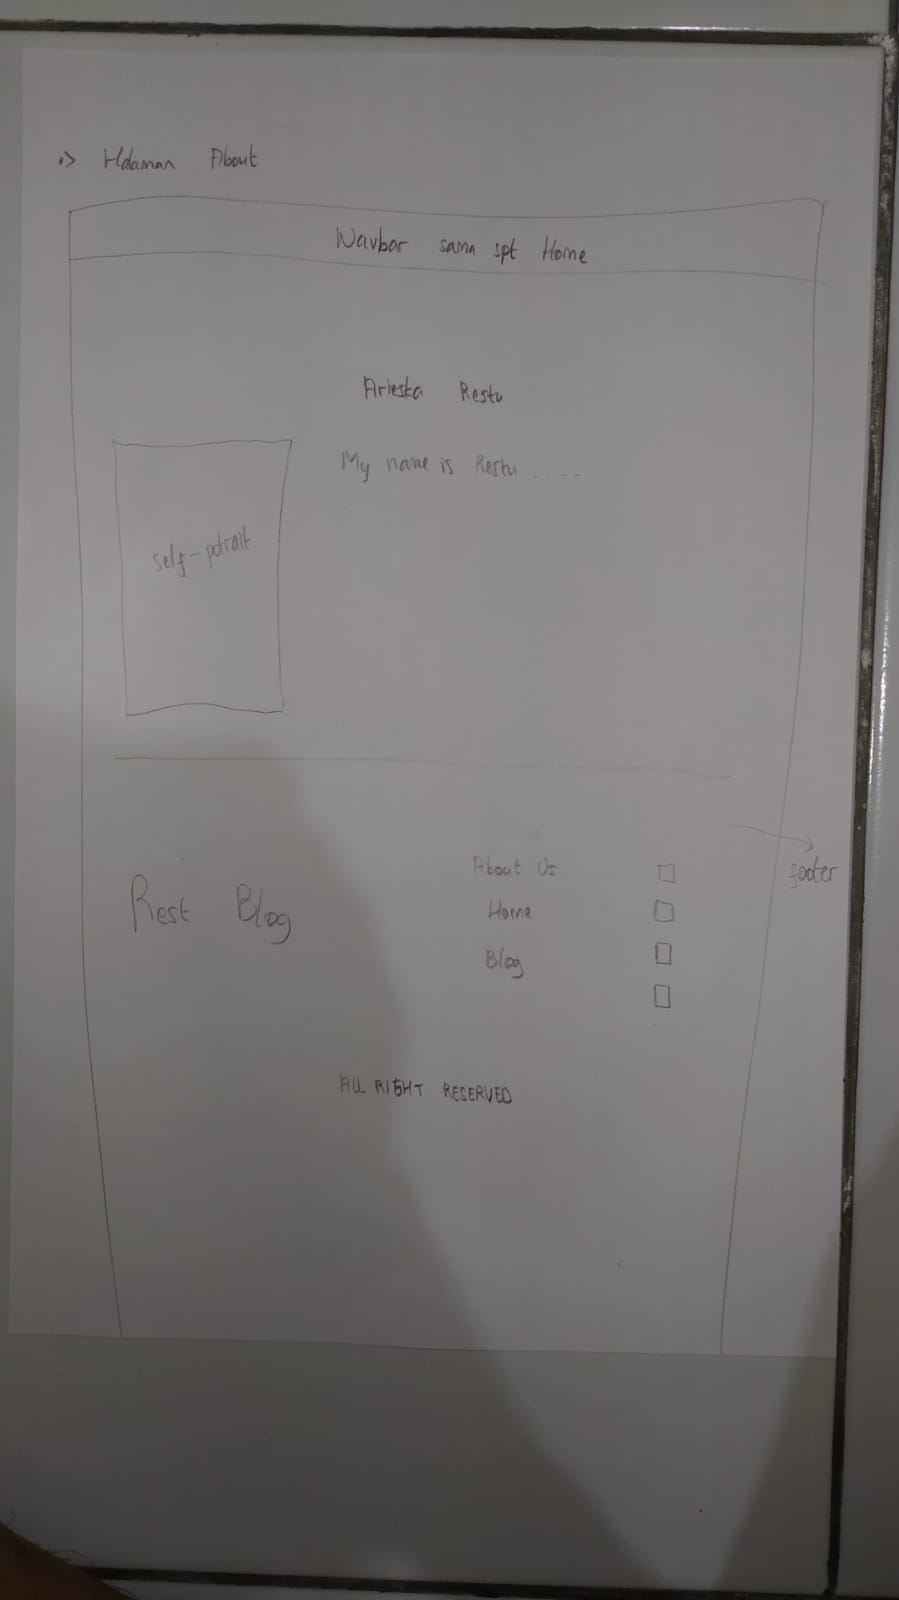 •> Halaman About
Navbar sama spt Home
Arieska Restu
My name is Restu ....
self-potrait
footer
About Us
Rest Blog
Home
Blog
ALL RIGHT RESERVED